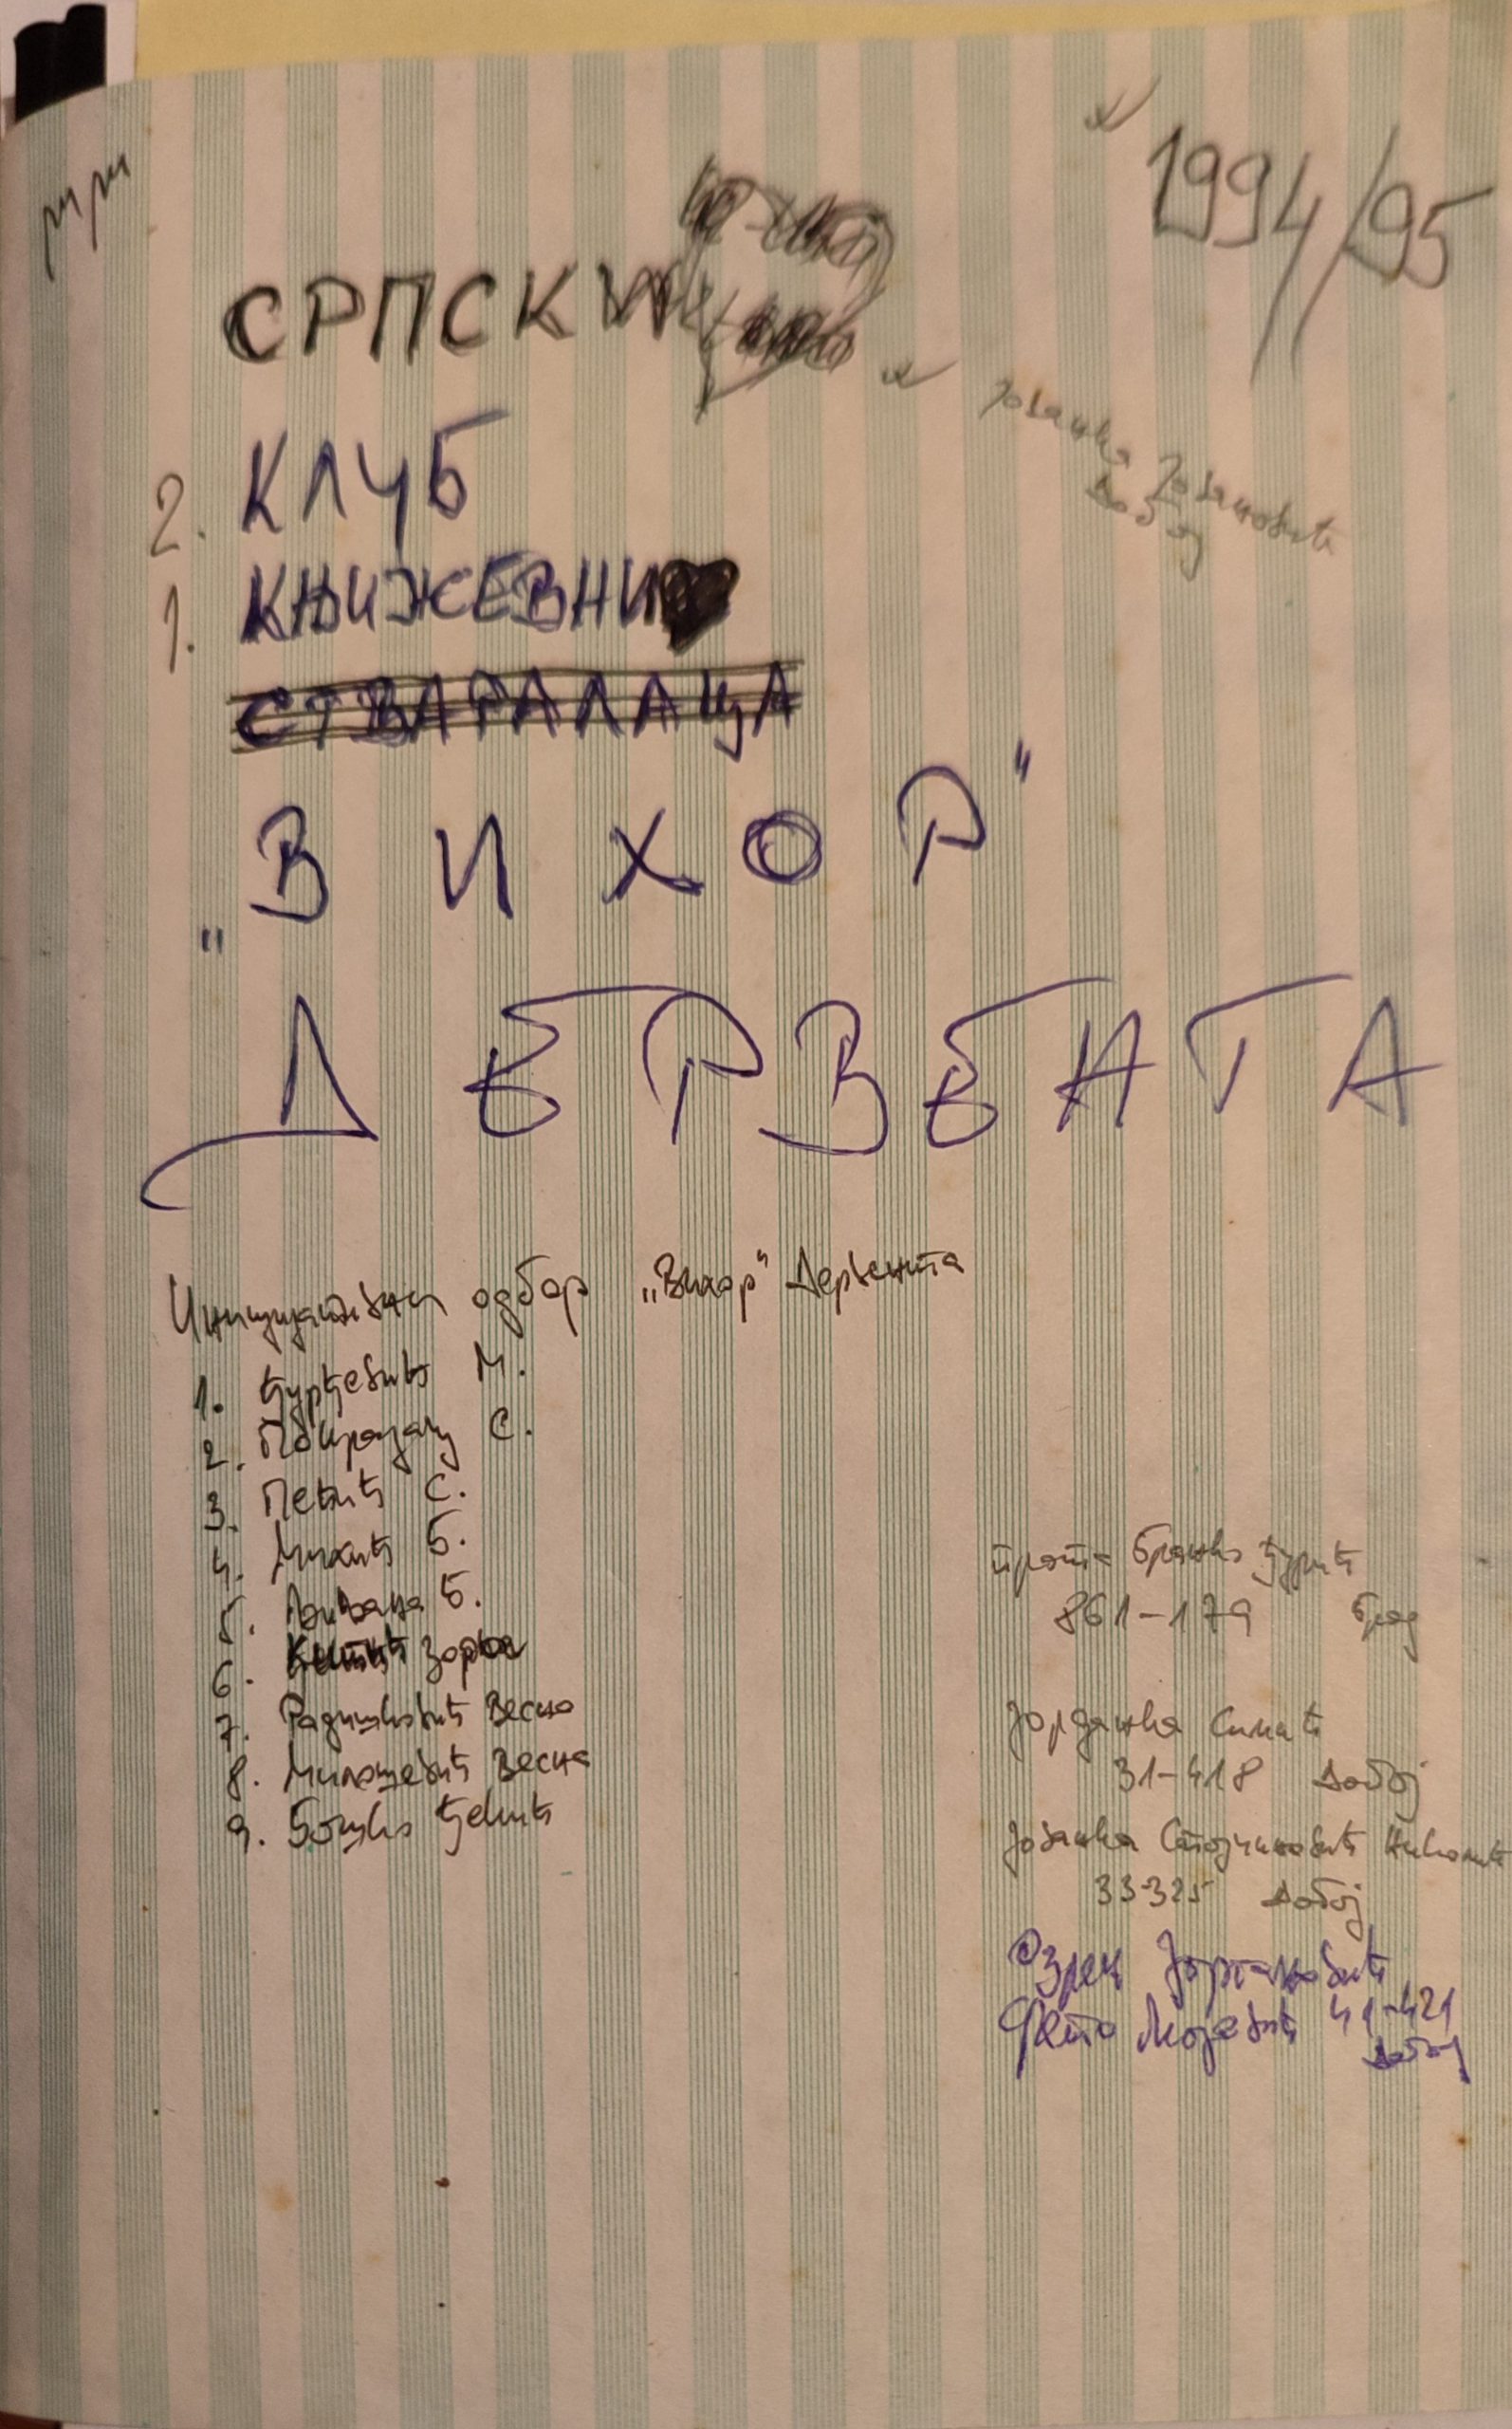 1994/95
СРПСКИ
Јованка Јовановић
Добој
2. КЛУБ
1. КЊИЖЕВНИ
СТВАРАЛАЦА
„ВИХОР"
ДЕРВЕНТА
Иницијативни одбор „Вихор" Дервента
1. Ђурђевић М.
2. Покрајац С.
3. Певић С.
4. Микић Б.
5. Б.
6. Зорка
7. Радишковић Весна
8. Милошевић Весна
9. Бошко Ђекић
прота Бранко Ђурић
861-179 Брод
Јорданка Симић
31-418 Добој
Јованка Стојчиновић Николић
33-325 Добој
Озрен Јоргановић
Мојевић 41-421
Добој